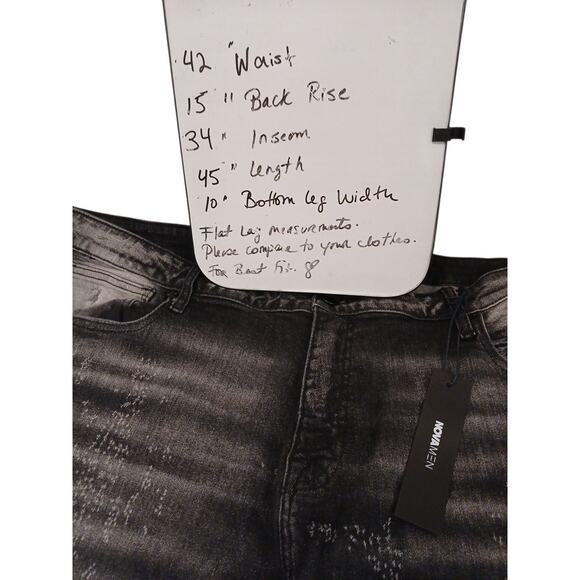 42 "Waist
15 " Back Rise
34 " Inseam
45 " Length
10" Bottom leg Width
Flat Lay measurments.
Please compare to your clothes.
For Best Fit.
NOVAMEN